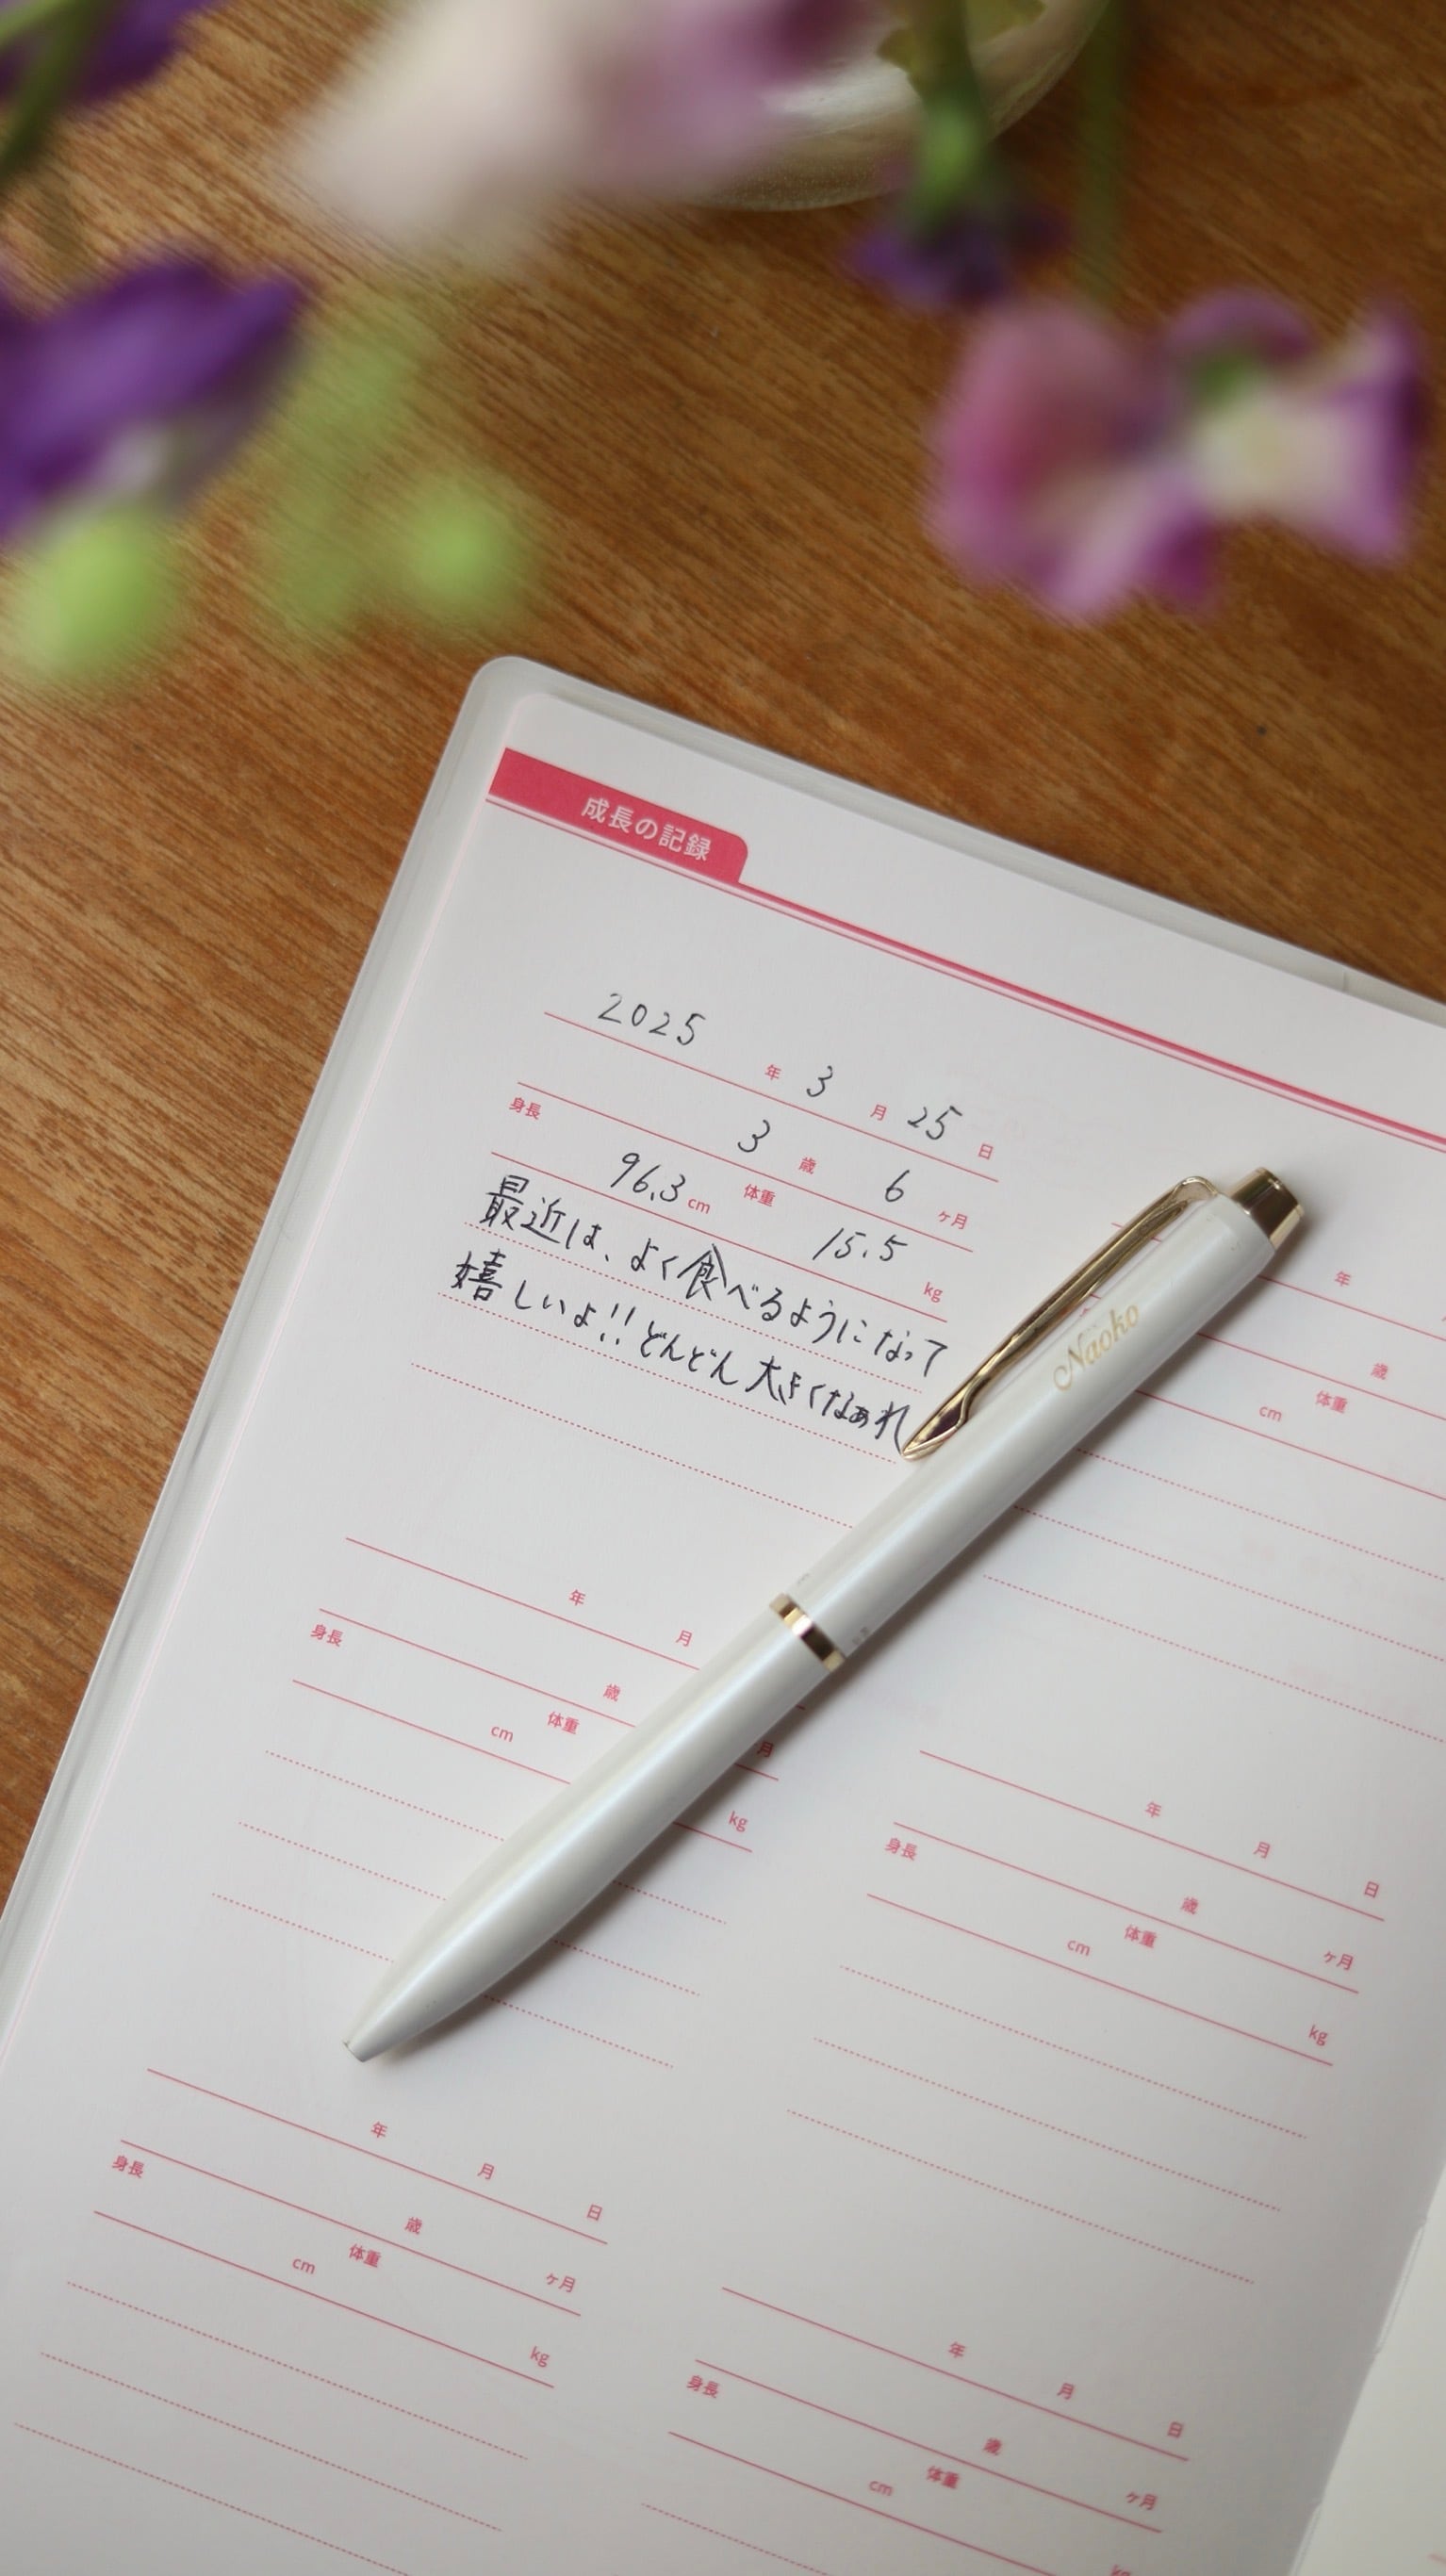 成長の記録
2025 年 3 月 25 日
3 歳 6 ヶ月
身長 96.3 cm 体重 15.5 kg
最近は、よく食べるようになって
嬉しいよ!! どんどん大きくなぁれ
Naoko
年
歳
cm 体重
年 月
歳 月
身長 cm 体重 kg
年 月 日
歳 ヶ月
身長 cm 体重 kg
年 月 日
歳 ヶ月
身長 cm 体重 kg
年 月 日
歳 ヶ月
身長 cm 体重 kg